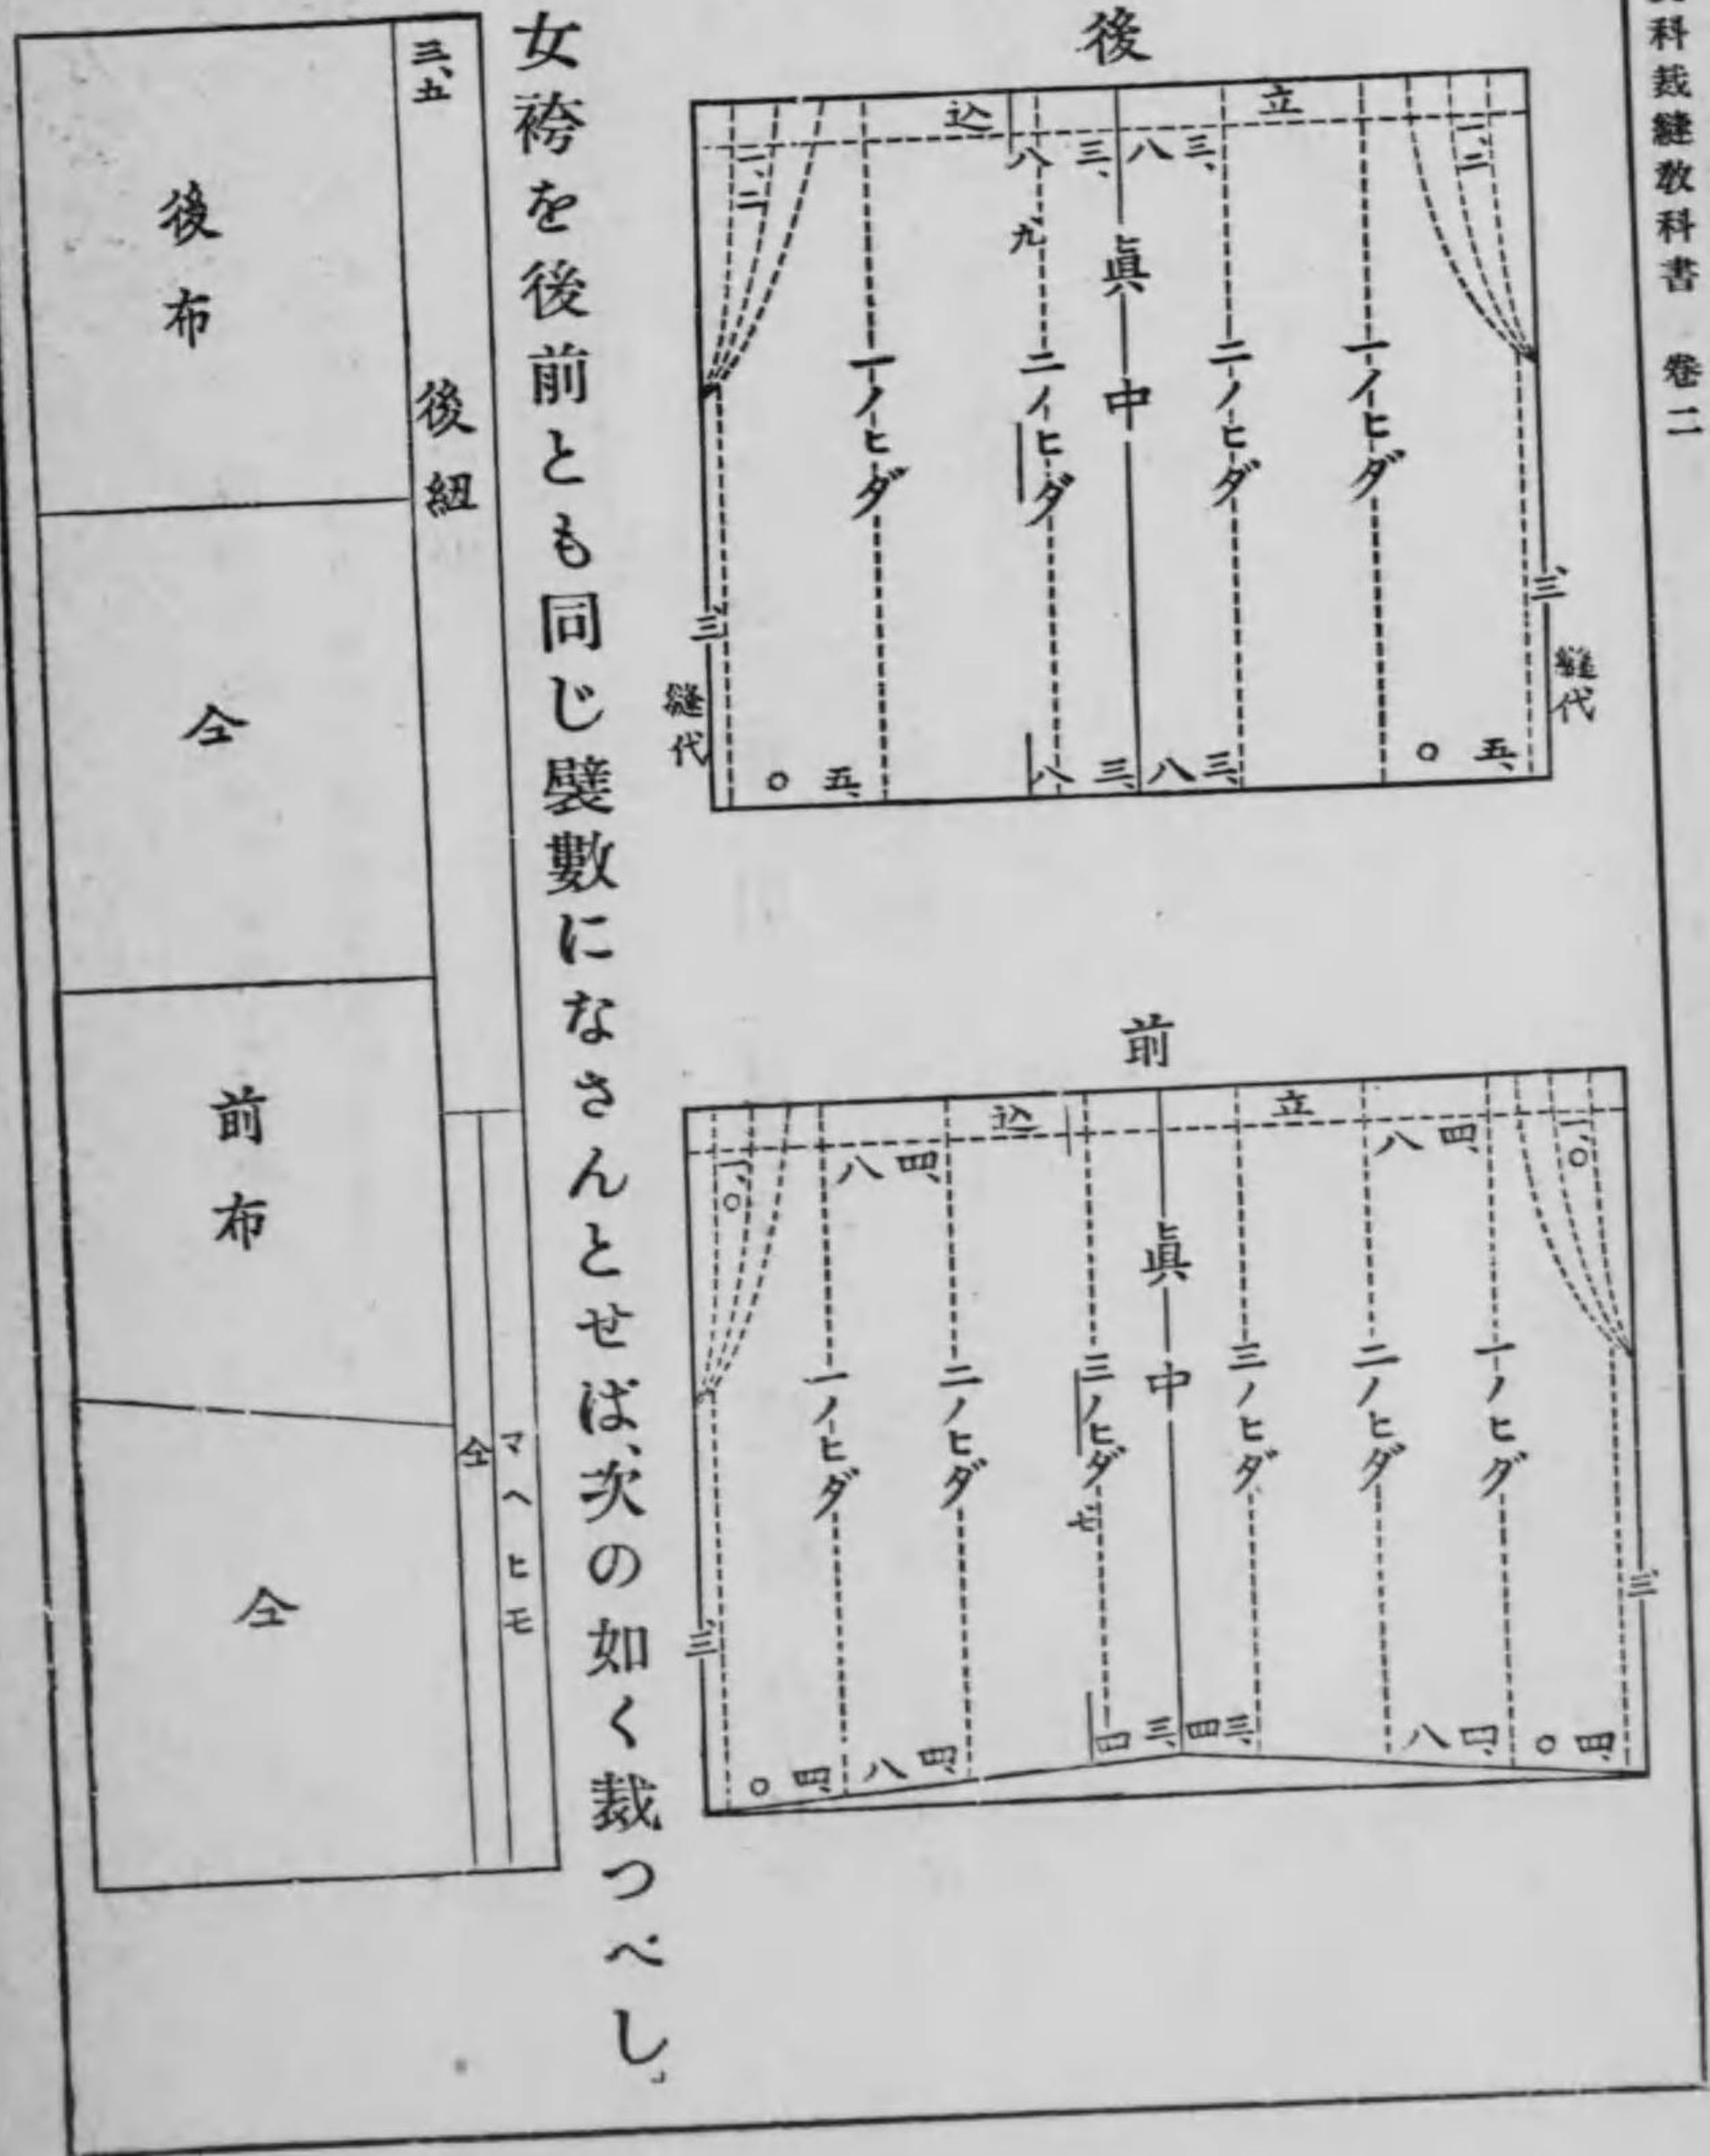 科裁縫教科書 卷二
後
立
込
一、二
一、二
三、八
三、八
九
眞中
一ノヒダ
二ノヒダ
二ノヒダ
一ノヒダ
三
三
縫代
縫代
五、〇
三、八
三、八
五、〇
前
立
込
一、〇
四、八
四、八
一、〇
眞中
一ノヒダ
二ノヒダ
三ノヒダ
三ノヒダ
二ノヒダ
一ノヒダ
七
三
三
四、〇
四、八
三、四
三、四
四、八
四、〇
女袴を後前とも同じ襞數になさんとせば、次の如く裁つべし。
三、五
後紐
マヘヒモ
仝
後布
仝
前布
仝